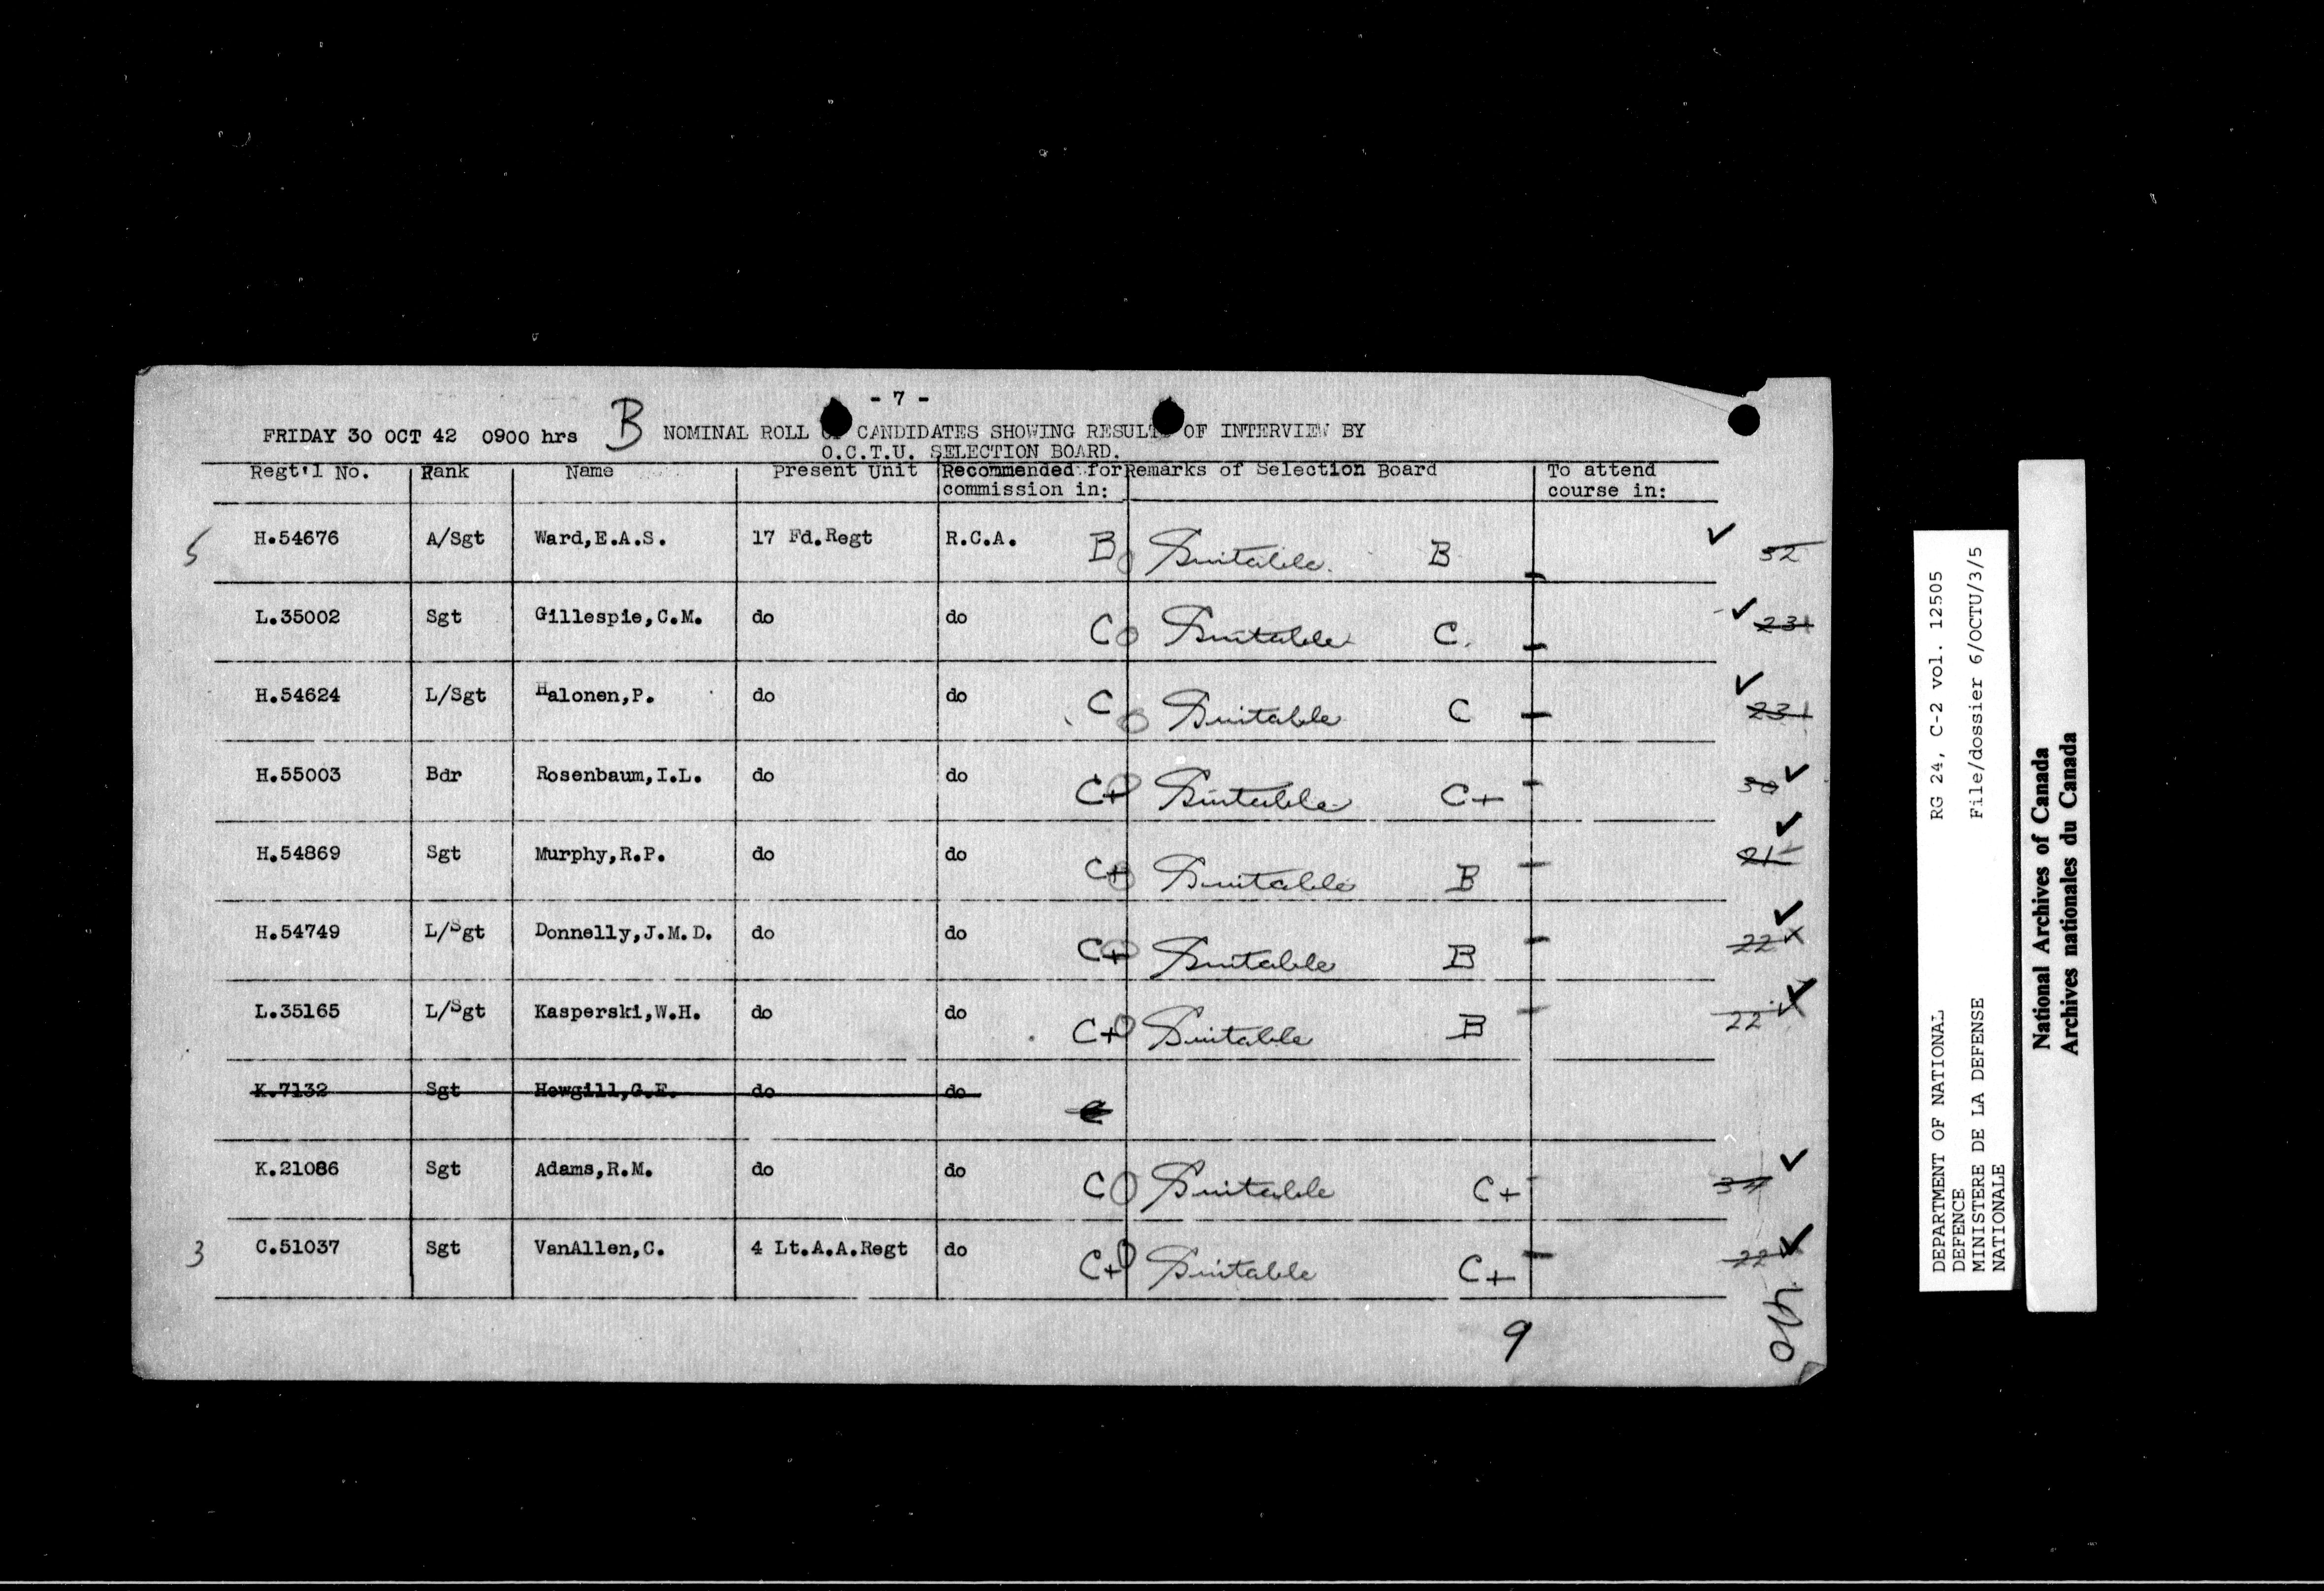 - 7 -
FRIDAY 30 OCT 42 0900 hrs B NOMINAL ROLL OF CANDIDATES SHOWING RESULTS OF INTERVIEW BY
O.C.T.U. SELECTION BOARD.
Regt'l No. Rank Name Present Unit Recommended for commission in: Remarks of Selection Board To attend course in:
5 H.54676 A/Sgt Ward,E.A.S. 17 Fd.Regt R.C.A. B Suitable. B ✓ 32
L.35002 Sgt Gillespie,C.M. do do C Suitable C. ✓ 231
H.54624 L/Sgt Halonen,P. do do C Suitable C ✓ 231
H.55003 Bdr Rosenbaum,I.L. do do C+ Suitable C+ 30 ✓
H.54869 Sgt Murphy,R.P. do do C+ Suitable B 21 ✓
H.54749 L/Sgt Donnelly,J.M.D. do do C+ Suitable B 22 ✓
L.35165 L/Sgt Kasperski,W.H. do do C+ Suitable B 22 ✓
K.7132 Sgt Hewgill,G.E. do do C
K.21086 Sgt Adams,R.M. do do C Suitable C+ ✓
3 C.51037 Sgt VanAllen,C. 4 Lt.A.A.Regt do C+ Suitable C+ 22 ✓
9
DEPARTMENT OF NATIONAL DEFENCE
MINISTERE DE LA DEFENSE NATIONALE
RG 24, C-2 vol. 12505
File/dossier 6/OCTU/3/5
National Archives of Canada
Archives nationales du Canada